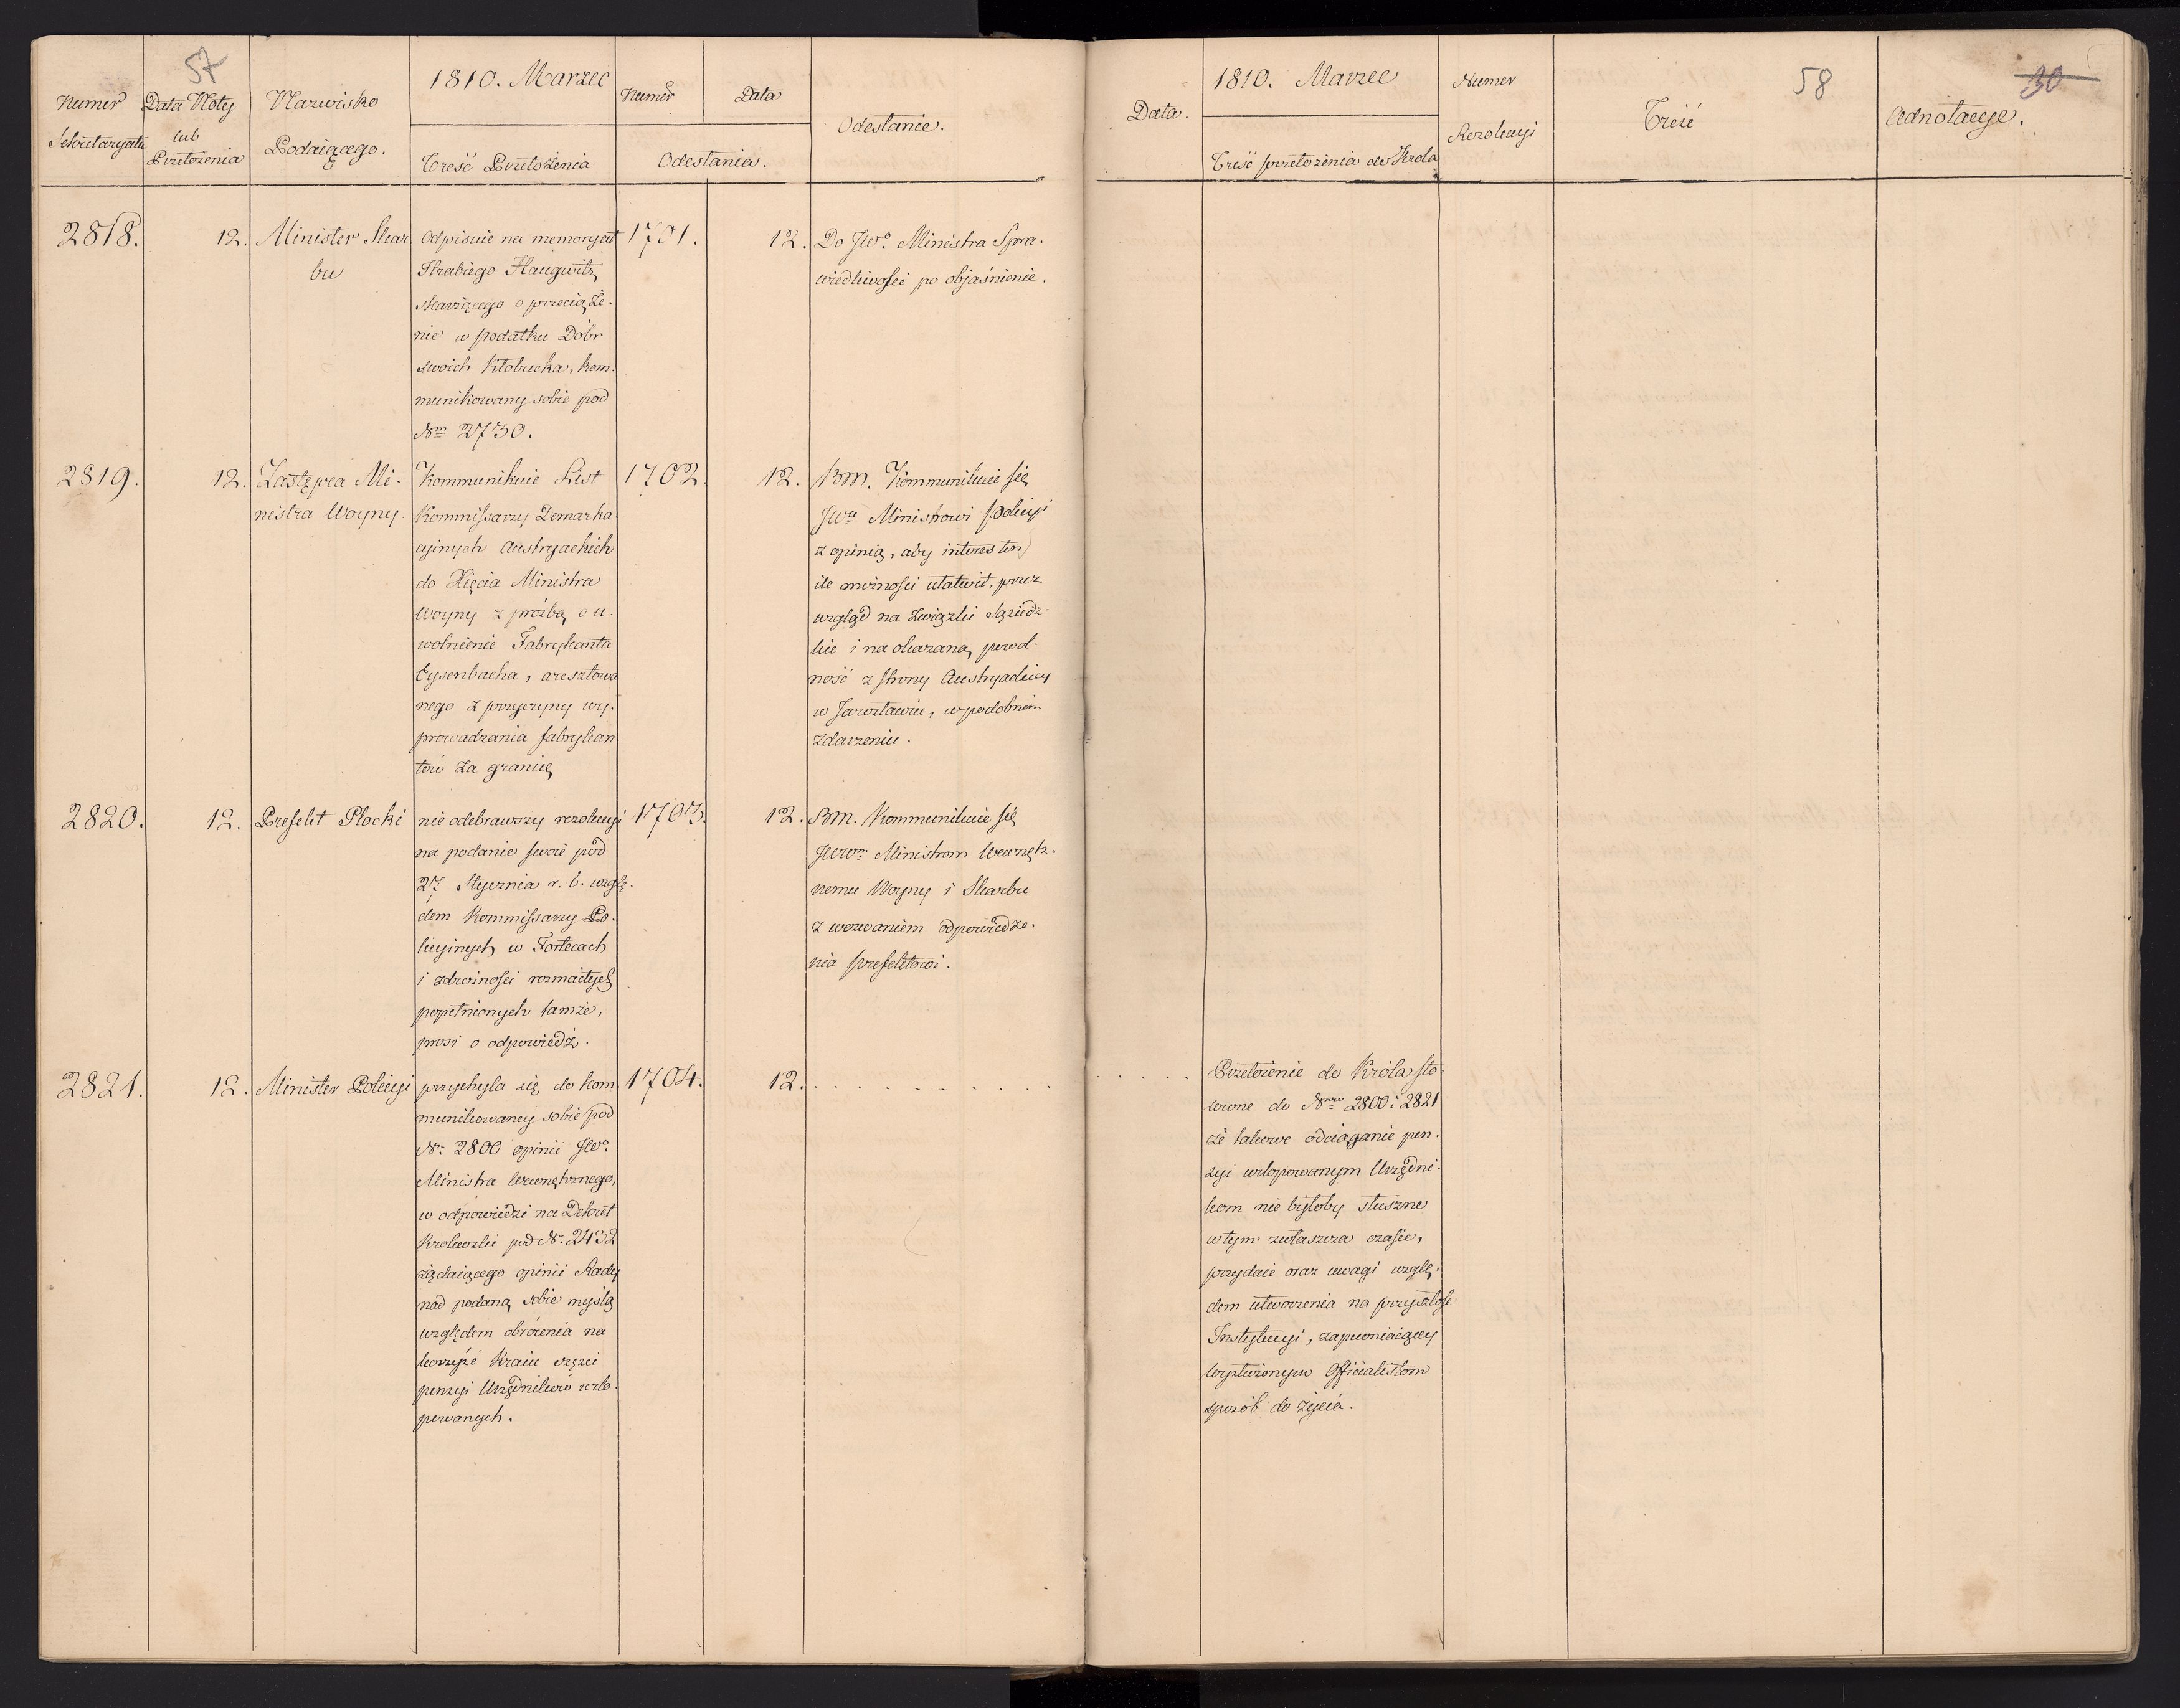 57
Numer
Sekretaryatu
Data Noty
lub
Przełożenia
Nazwisko
Podaiącego.
1810. Marzec
Treść Przełożenia
Numer
Data
Odesłania.
Odesłanie.
2818.
12.
Minister Skar
bu
Odpisuie na memoryał
Hrabiego Haugwitz,
skarżącego o przeciąże-
nie w podatku Dóbr
swoich Kłobucka, kom-
munikowany sobie pod
Nm 2730.
1701.
12.
Do JWo. Ministra Spra-
wiedliwości po objaśnienie.
2819.
12.
Zastępca Mi-
nistra Woyny.
Kommunikuie List
Kommissarzy Demarka
cyinych Austryackich
do Xięcia Ministra
Woyny z proźbą o u-
wolnienie Fabrykanta
Eysenbacha, aresztowa
nego z przyczyny wy-
prowadzania fabrykan
tów za granicę
1702.
12.
Bm. Kommunikuie się
JWu Ministrowi Policyi
z opinią, aby interes ten
ile możności ułatwił, przez
wzgląd na związki Sąsiedz-
kie i na okazaną powol-
ność z strony Austryackiey
w Jarosławiu, w podobnem
zdarzeniu.
2820.
12.
Prefekt Płocki
nie odebrawszy rezolucyi
na podanie swoie pod
27 Stycznia r. b. wzglę-
dem Kommissarzy Po-
licyinych w Fortecach
i zdrożności rozmaitych
popełnionych tamże,
prosi o odpowiedź.
1703.
12.
Bm. Kommunikuie się
JWWm Ministrom Wewnętrz-
nemu Woyny i Skarbu
z wezwaniem odpowiedze-
nia prefektowi.
2821.
12.
Minister Policyi
przychyla się do kom-
munikowaney sobie pod
Nr 2800 opinii JWo.
Ministra Wewnętrznego,
w odpowiedzi na Dekret
Krolewski pod Nr. 2432
żądaiącego opinii Rady
nad podaną sobie myslą
względem obrócenia na
korzyść Kraiu części
pensyi Urzędników urlo-
powanych.
1704.
12.
. . . . . . . . . . .
Data.
1810. Marzec
Treść przełożenia do Krola
Numer
Rezolucyi
Treść
58
30
Adnotacye.
. . . . .
Przełożenie do Króla sto-
sowne do Nrow 2800 i 2821
że takowe odciąganie pen-
syi urlopowanym Urzędni-
kom nie byłoby słuszne
w tym zwłaszcza czasie,
przydaie oraz uwagi wzglę-
dem utworzenia na przyszłość
Instytucyi, zapewniaiącey
wysłużonym Officialistom
sposób do życia.